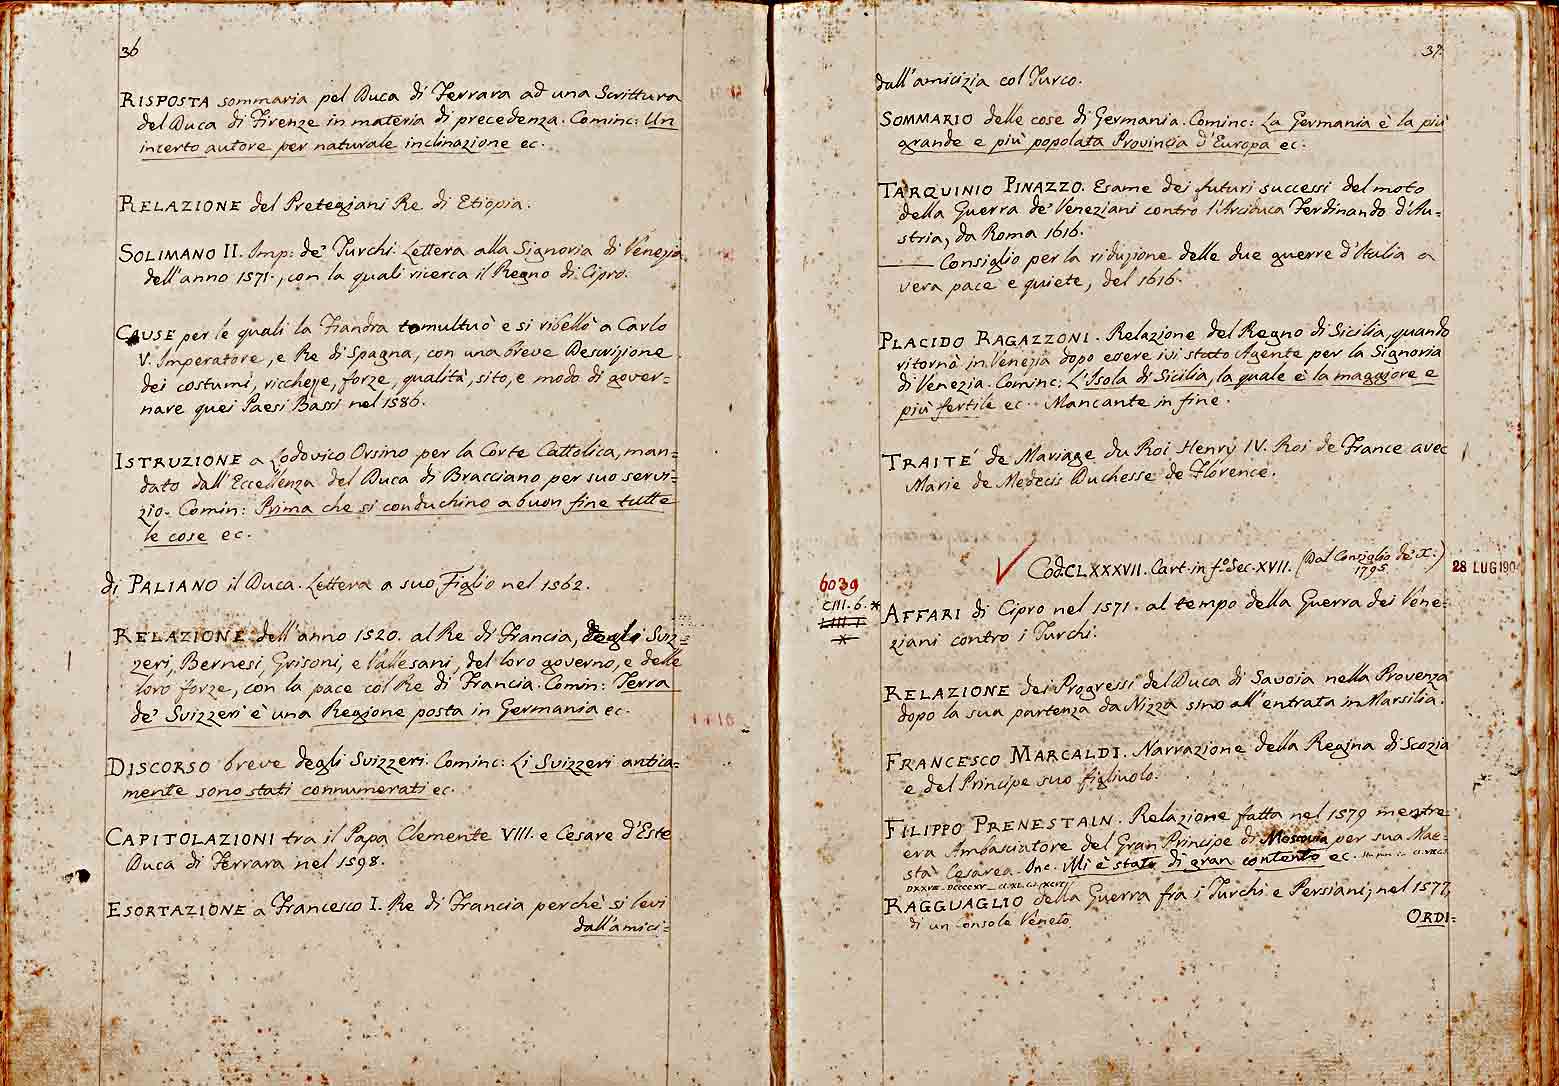 36
RISPOSTA sommaria pel Duca di Ferrara ad una Scrittura
del Duca di Firenze in materia di precedenza. Cominc: Un
incerto autore per naturale inclinazione ec.
RELAZIONE del Pretegiani Re di Etiopia.
SOLIMANO II. Imp: de' Turchi. Lettera alla Signoria di Venezia
dell'anno 1571., con la quale ricerca il Regno di Cipro.
CAUSE per le quali la Fiandra tomultuò e si ribellò a Carlo
V. Imperatore, e Re di Spagna, con una breve Descrizione
dei costumi, ricchezze, forze, qualità, sito, e modo di gover=
nare quei Paesi Bassi nel 1586.
ISTRUZIONE a Lodovico Orsino per la Corte Cattolica, man=
dato dall'Eccellenza del Duca di Bracciano per suo servi=
zio. Comin: Prima che si conduchino a buon fine tutte
le cose ec.
di PALIANO il Duca. Lettera a suo Figlio nel 1562.
RELAZIONE dell'anno 1520. al Re di Francia, degli Sviz=
zeri, Bernesi, Grisoni, e Vallesani, del loro governo, e delle
loro forze, con la pace col Re di Francia. Comin: Terra
de' Svizzeri è una Regione posta in Germania ec.
DISCORSO breve degli Svizzeri. Cominc: Li Svizzeri antica=
mente sono stati connumerati ec.
CAPITOLAZIONI tra il Papa Clemente VIII. e Cesare d'Este
Duca di Ferrara nel 1598.
ESORTAZIONE a Francesco I. Re di Francia perchè si levi
dall'amici=
37
dall'amicizia col Turco.
SOMMARIO delle cose di Germania. Cominc: La Germania è la più
grande e più popolata Provincia d'Europa ec.
TARQUINIO PINAZZO. Esame dei futuri successi del moto
della Guerra de' Veneziani contro l'Arciduca Ferdinando d'Au=
stria, da Roma 1616.
Consiglio per la riduzione delle due guerre d'Italia a
vera pace e quiete, del 1616.
PLACIDO RAGAZZONI. Relazione del Regno di Sicilia, quando
ritornò in Venezia dopo essere ivi stato Agente per la Signoria
di Venezia. Cominc: L'Isola di Sicilia, la quale è la maggiore e
più fertile ec. Mancante in fine.
TRAITÉ de Mariage du Roi Henry IV. Roi de France avec
Marie de Medecis Duchesse de Florence.
Cod. CLXXXVII. Cart. in fo. Sec. XVII. (Dal Consiglio de' X. 1795.)
28 LUG 190
6039
CIII. 6. *
AFFARI di Cipro nel 1571. al tempo della Guerra dei Vene=
ziani contro i Turchi.
RELAZIONE dei Progressi del Duca di Savoia nella Provenza
dopo la sua partenza da Nizza sino all'entrata in Marsilia.
FRANCESCO MARCALDI. Narrazione della Regina di Scozia
e del Principe suo figliuolo.
FILIPPO PRENESTAIN. Relazione fatta nel 1579 mentre
era Ambasciatore del Gran Principe di Moscovia per sua Mae=
stà Cesarea. Inc. Mi è stato di gran contento ec.
RAGGUAGLIO della Guerra fra i Turchi e Persiani, nel 1577,
di un Console Veneto.
ORDI=